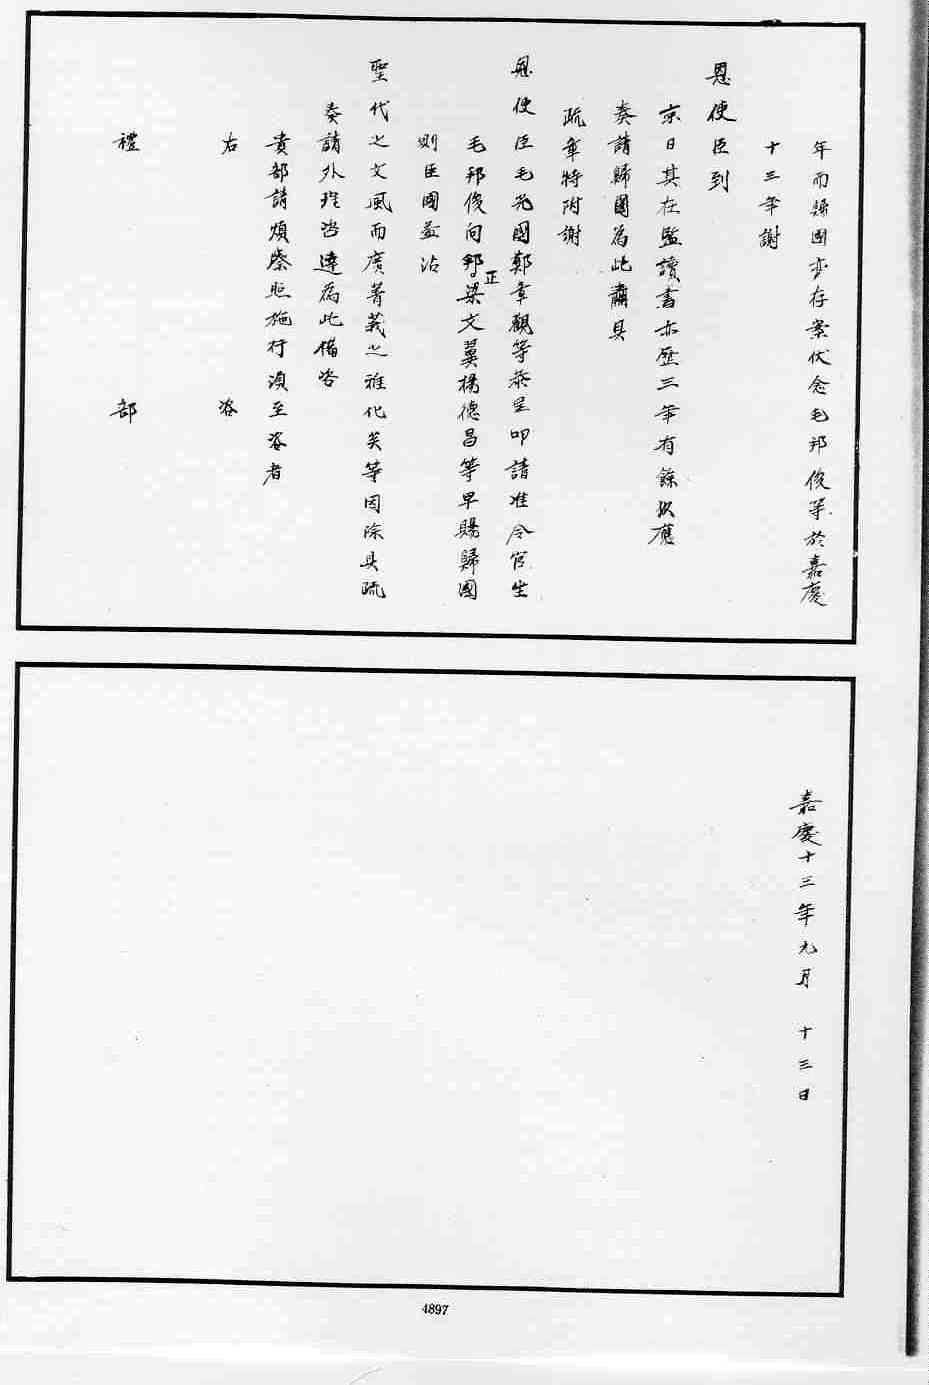 年而歸國亦存案伏念毛邦俊等於嘉慶
十三年謝
恩使臣到
京日其在監讀書亦歷三年有餘似應
奏請歸國為此肅具
疏章特附謝
恩使臣毛光國鄭章觀等恭呈叩請准令官生
毛邦俊向邦正梁文翼楊德昌等早賜歸國
則臣國益沾
聖代之文風而廣菁莪之雅化矣等因除具疏
奏請外理咨達為此備咨
貴部請煩察照施行湏至咨者
右咨
禮部
嘉慶十三年九月 十三日
4897